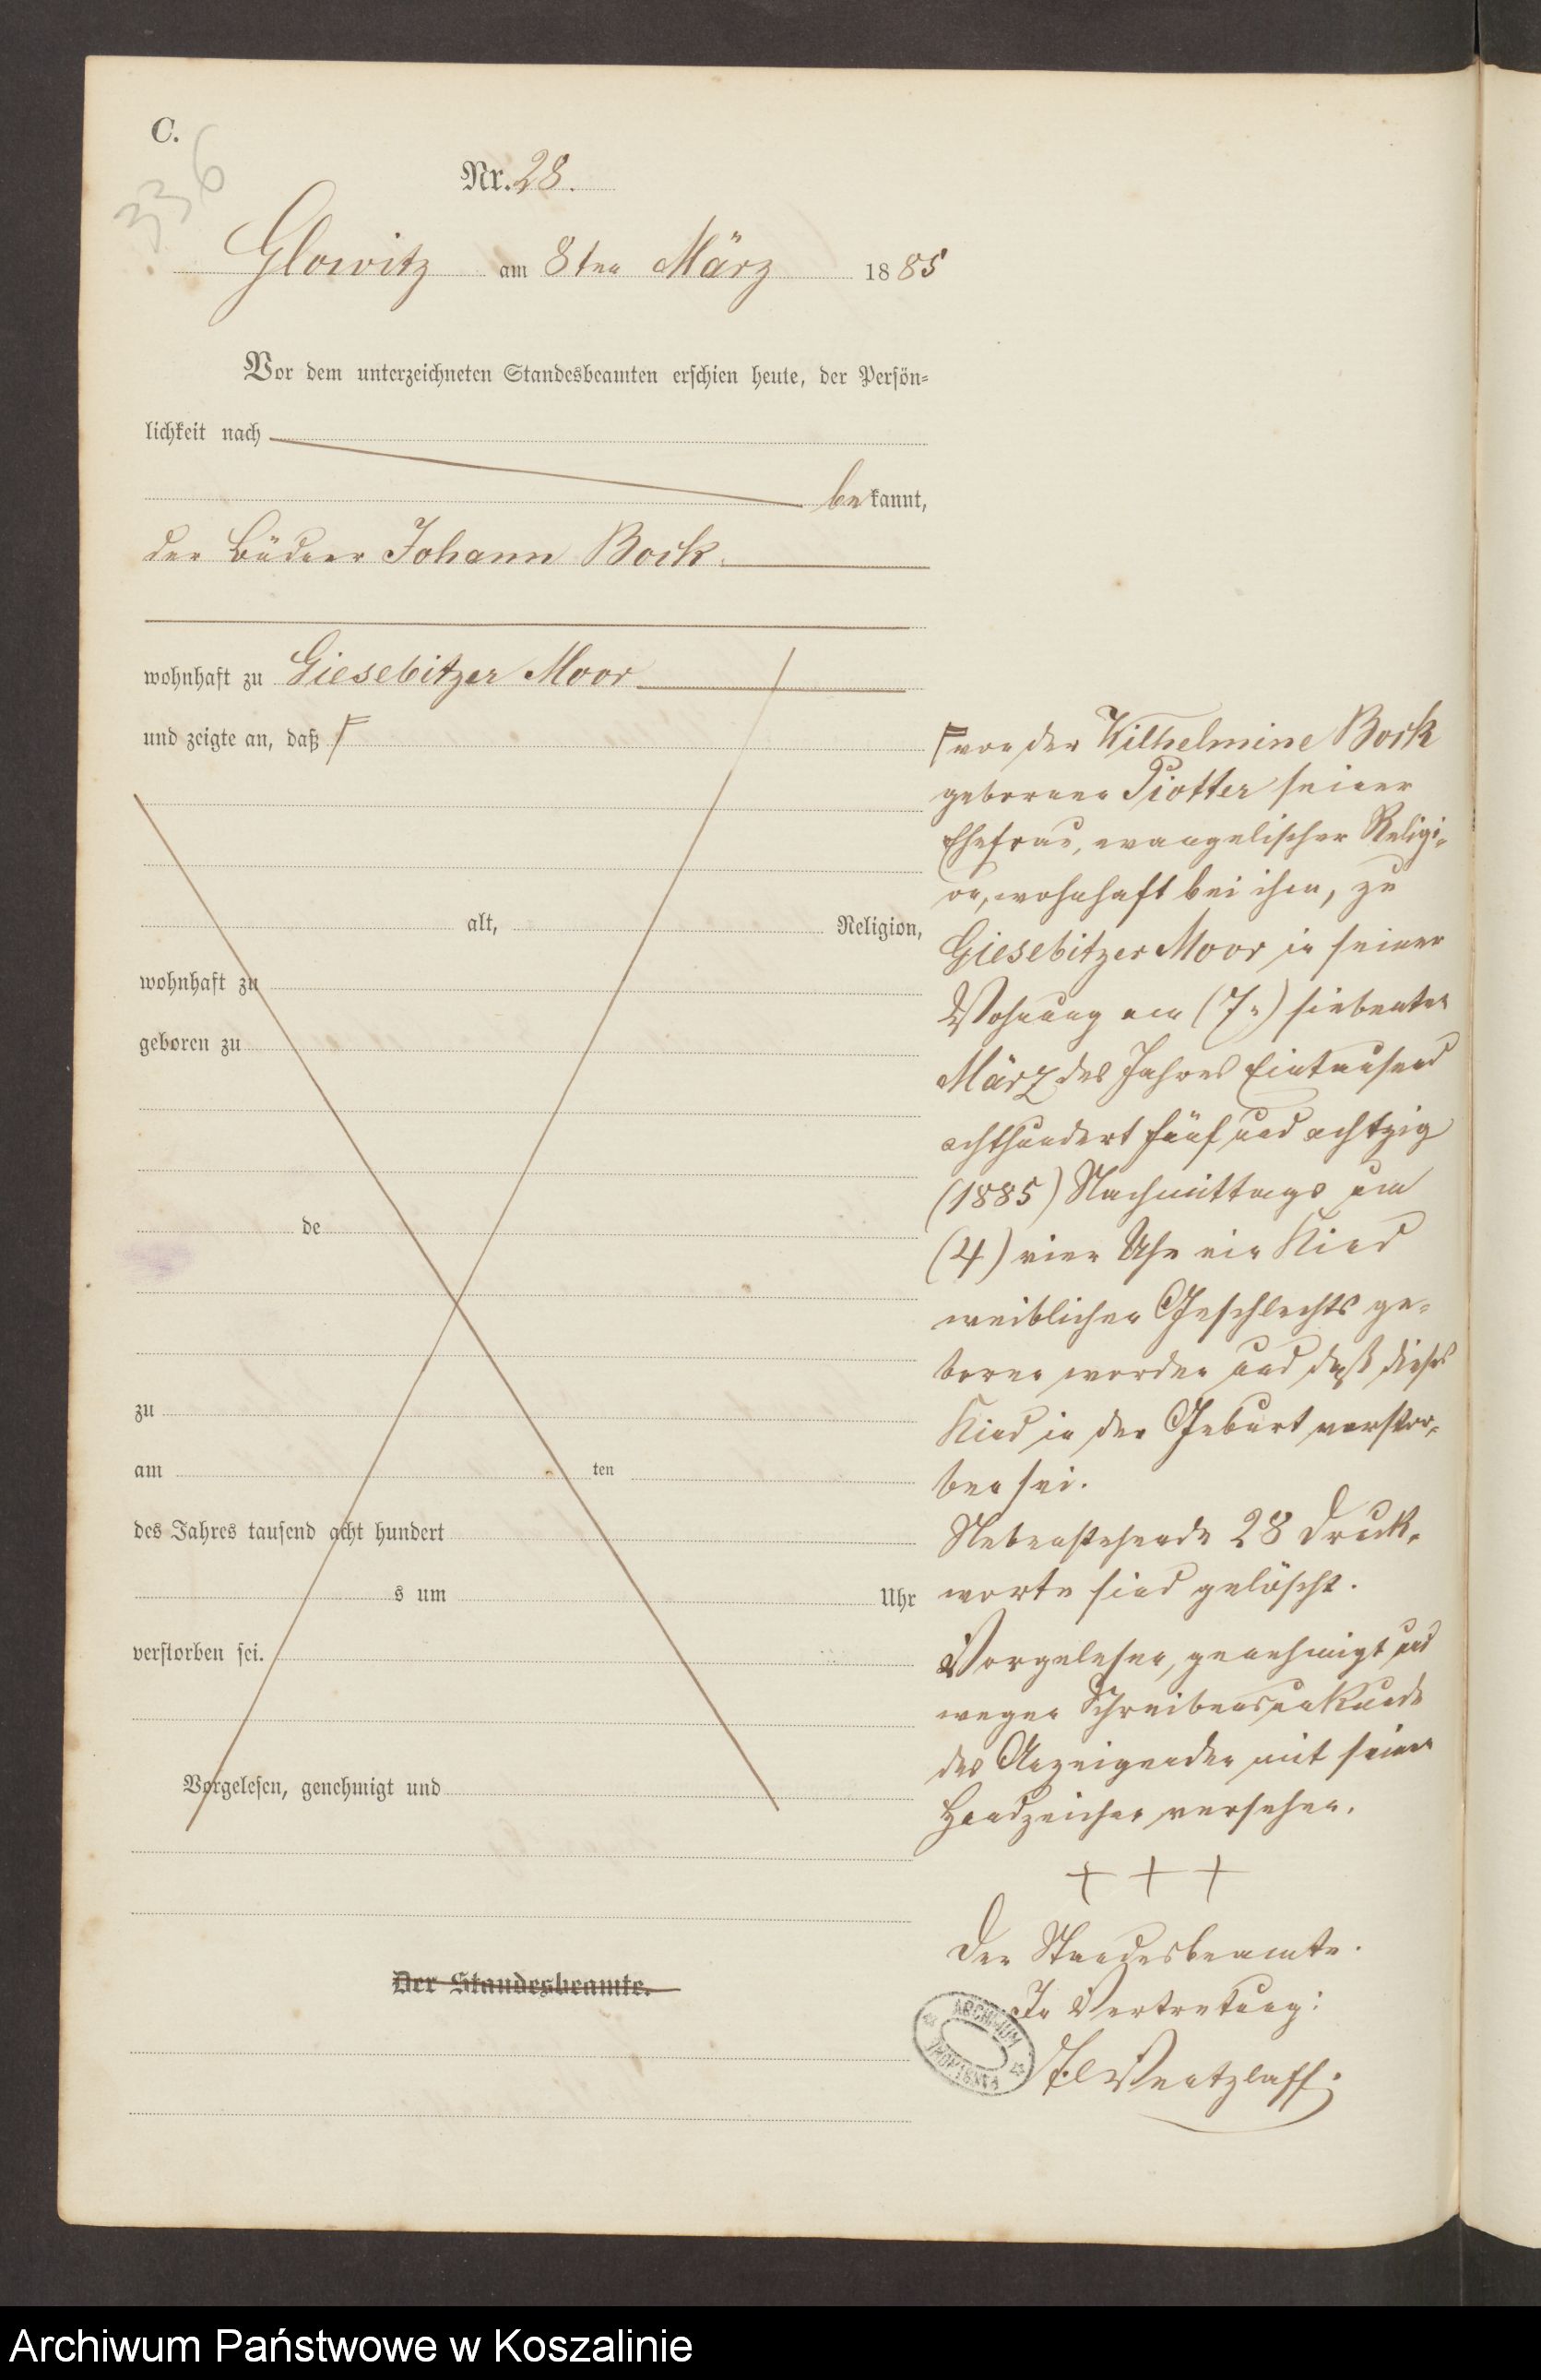 C.
336
Nr. 28.
Glowitz am 8ten März 1885
Vor dem unterzeichneten Standesbeamten erschien heute, der Persön-
lichkeit nach
bekannt,
der Büdner Johann Bock.
wohnhaft zu Giesebitzer Moor
und zeigte an, daß
alt, Religion,
wohnhaft zu
geboren zu
de
zu
am ten
des Jahres tausend acht hundert
s um Uhr
verstorben sei.
Vorgelesen, genehmigt und
Der Standesbeamte.
von der Wilhelmine Bock
geborenen Piotter seiner
Ehefrau, evangelischer Religi-
on, wohnhaft bei ihm, zu
Giesebitzer Moor in seiner
Wohnung am (7n) siebenten
März des Jahres Eintausend
achthundert fünf und achtzig
(1885) Nachmittags um
(4) vier Uhr ein Kind
weiblichen Geschlechts ge-
boren worden und daß dieses
Kind in der Geburt verstor-
ben sei.
Nebenstehende 28 Druck-
worte sind gelöscht.
Vorgelesen, genehmigt und
wegen Schreibensunkunde
des Anzeigenden mit seinen
Handzeichen versehen.
+ + +
Der Standesbeamte.
In Vertretung:
Wentzlaff.
ARCHIWUM
Archiwum Państwowe w Koszalinie